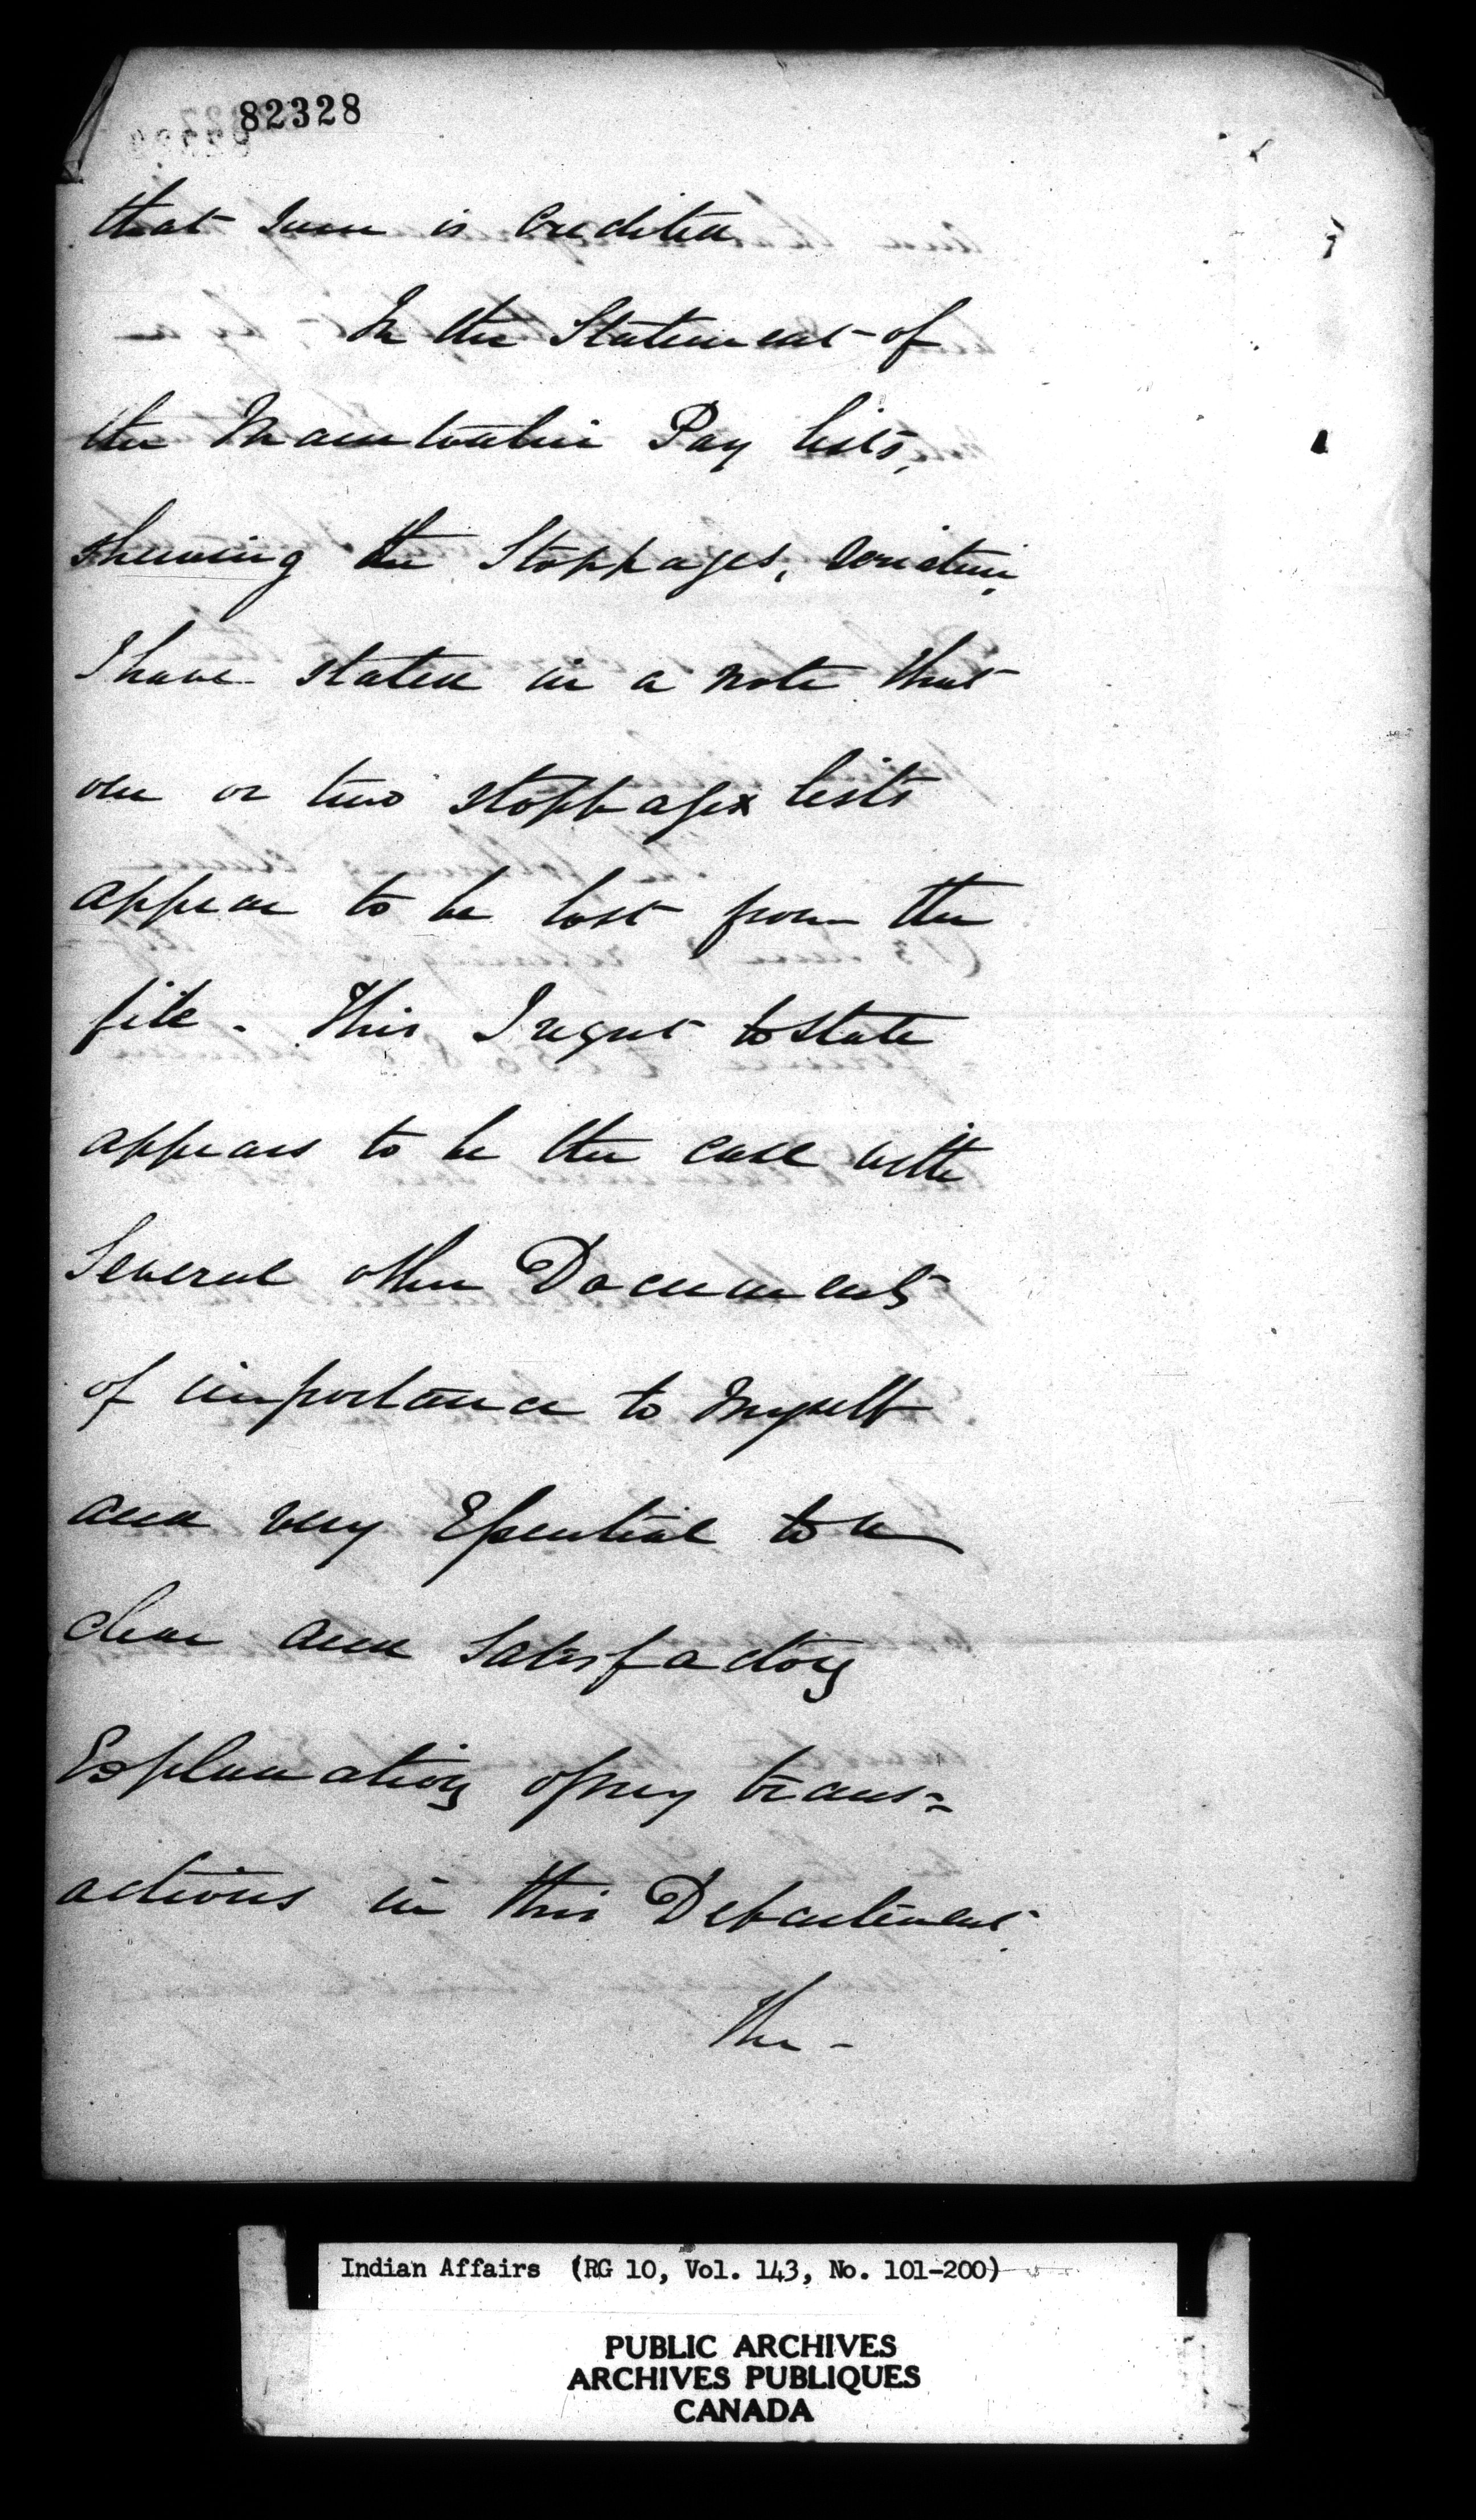 82328
that Sum is Credited
In the Statement of
the Manitoulin Pay lists,
shewing the Stoppages,
I have stated in a note that
one or two stoppages lists
appear to be lost from the
file - This I regret to state
appears to be the case with
Several other Documents
of importance to Myself
and very Essential to a
clear and Satisfactory
Explanation of my trans=
actions in this Department.
The -
Indian Affairs (RG 10, Vol. 143, No. 101-200)
PUBLIC ARCHIVES
ARCHIVES PUBLIQUES
CANADA